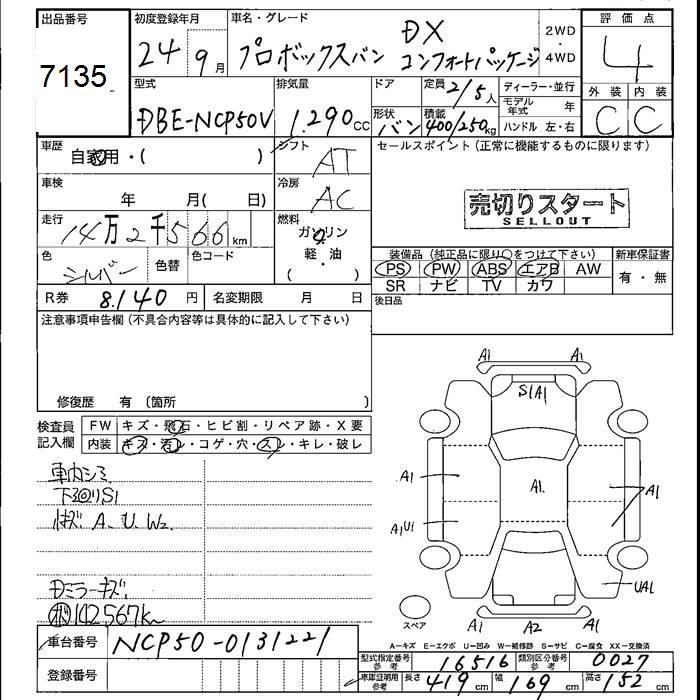 出品番号
7135
初度登録年月
24 9月
車名・グレード
プロボックスバン
DX
コンフォートパッケージ
2WD
・
4WD
評価点
4
外装 内装
C C
型式
DBE-NCP50V
排気量
1.290cc
ドア
定員 2/5人
形状
バン
積載
400/250kg
ディーラー・並行
モデル年式 年
ハンドル 左・右
車歴
自家用・( )
シフト
AT
セールスポイント(正常に機能するものに限ります)
売切りスタート
SELLOUT
車検
年 月( 日)
冷房
AC
走行
14万2千566km
燃料
ガソリン
軽・油
( )
色
シルバー
色替
色コード
装備品(純正品に限り○をつけて下さい)
PS PW ABS エアB AW
SR ナビ TV カワ
新車保証書
有・無
R券 8.140円
名変期限 月 日
後日品
注意事項申告欄(不具合内容等は具体的に記入して下さい)
修復歴 有 (箇所 )
検査員
記入欄
FW キズ・飛石・ヒビ割・リペア跡・X要
内装 キズ・汚レ・コゲ・穴・スレ・キレ・破レ
車内シミ
下廻りS1
小キズ A、U、W2
Dミラーキズ
142567km
A1 A1
S1A1
A1 A1 A1
A1U1
UA1
スペア
A1 A2 A1
A-キズ E-エクボ U-凹み W-補修跡 S-サビ C-腐食 XX-交換済
車台番号 NCP50-0131221
登録番号
型式指定番号
参考
16516
類別区分番号
参考
0027
車庫証明用
参考
長さ 419cm 幅 169cm 高さ 152cm